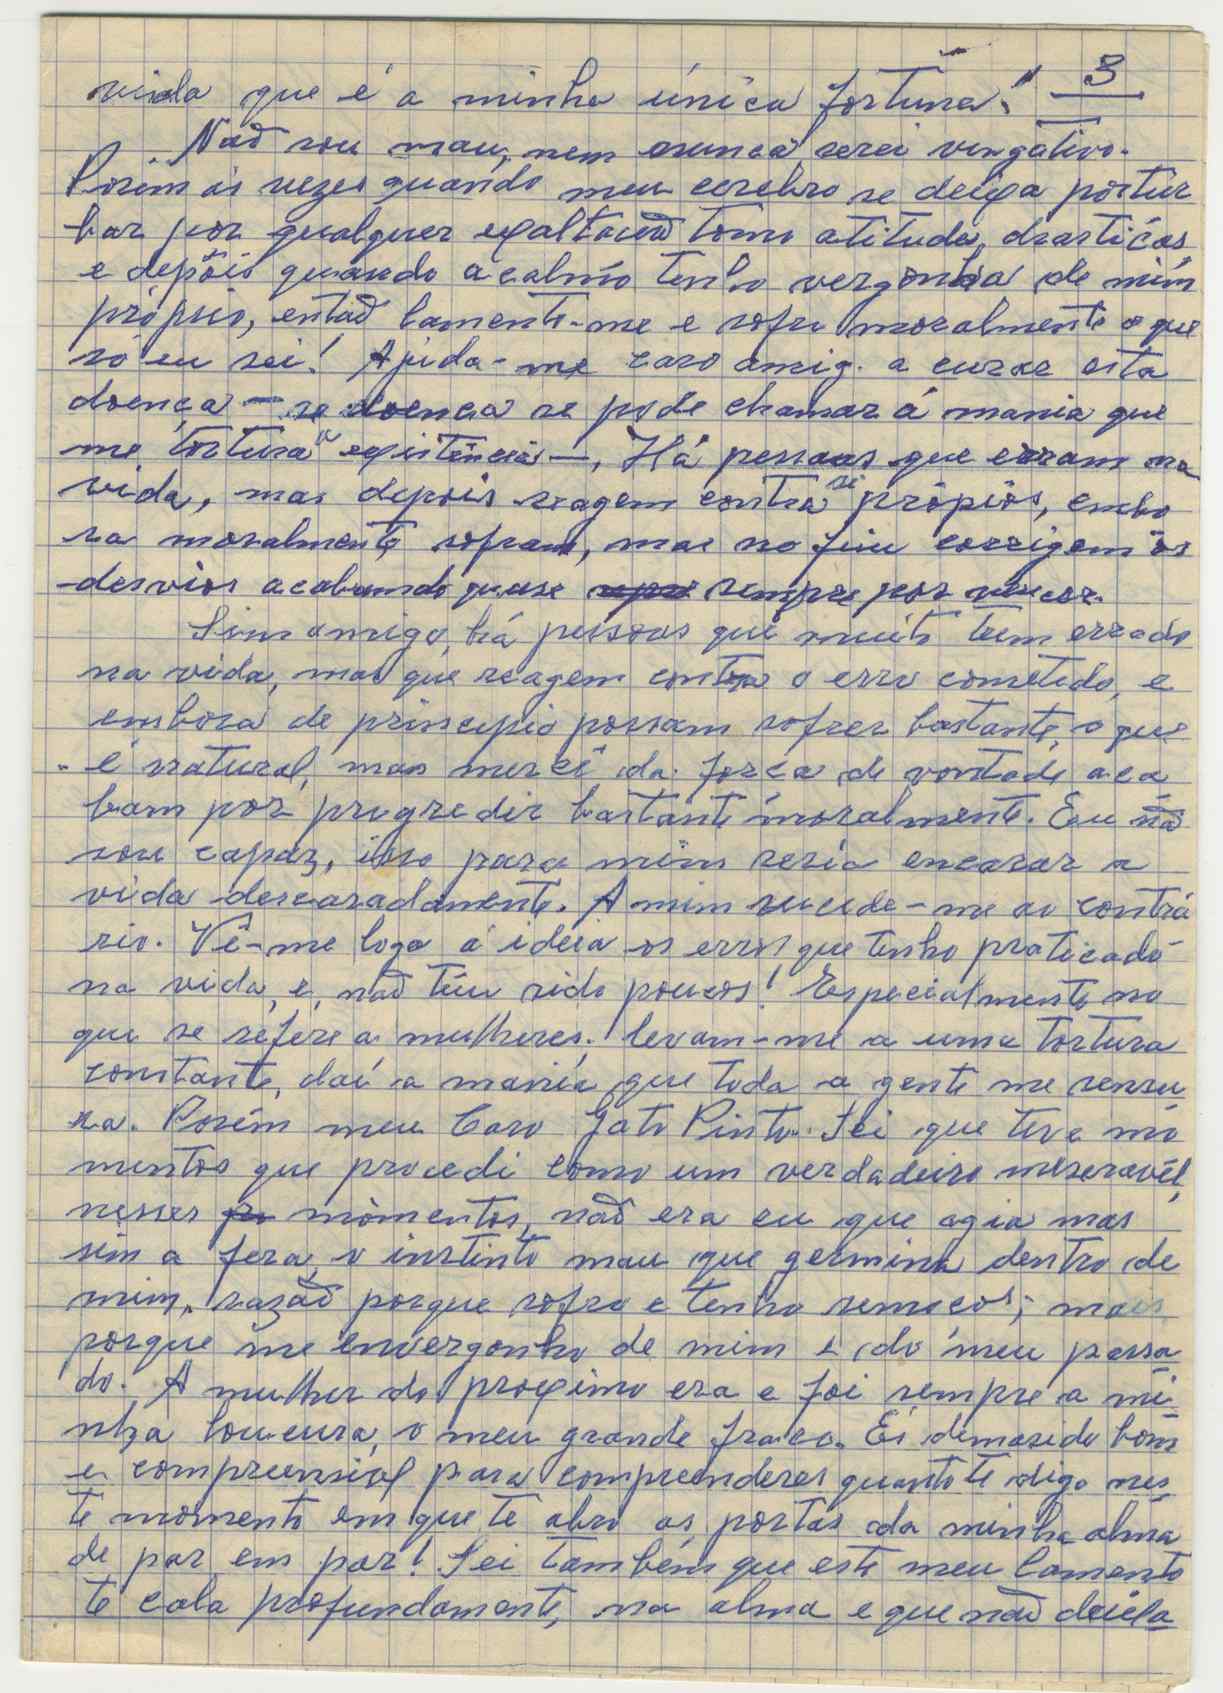 3
vida que é a minha única fortuna."
Naõ sou mau, nem nunca serei vingativo.
Porém ás vezes quando meu cerebro se deixa portur
bar por qualquer exaltacaõ tomo atitudes drasticas,
e depois quando acalmo tenho vergonha de mim
próprio, entaõ lamento-me e sofro moralmente o que
só eu sei! Ajuda-me caro amig. a curar esta
doença - se doença se pode chamar á mania que
me tortura a existência -, Há pessoas que erram na
vida, mas depois reagem contra si própios, embo
ra moralmente sofram, mas no fim corrigem os
desvios acabando quase sempre por vencer.
Sim amigo, há pessoas que muito teem errado
na vida, mas que reagem contra o erro cometido, e
embora de principio possam sofrer bastante, o que
é natural, mas mercê da força de vontade aca
bam por progredir bastante moralmente. Eu naõ
sou capaz, isso para mim seria encarar a
vida descaradamente. A mim sucede-me ao contrá
rio. Vê-me logo á ideia os erros que tenho praticado
na vida, e, naõ têm sido poucos! Especialmente no
que se refere a mulheres. levam-me a uma tortura
constante, daí a mania que toda a gente me censu
ra. Porém meu Caro Gato Pinto. Sei que tive mo
mentos que procedi como um verdadeiro meseravél,
nesses momentos, naõ era eu que agia mas
sim a fera, o instinto mau que germina dentro de
mim, razaõ porque sofro e tenho remorços; mais
porque me envergonho de mim e do meu passa
do. A mulher do proximo era e foi sempre a mi
nha loucura, o meu grande fraco. És demasido bom
e compreensivel para compreenderes quanto te digo nes
te momento em que te abro as portas da minha alma
de par em par! Sei também que este meu lamento
te cala profundamente, na alma e que naõ deiela